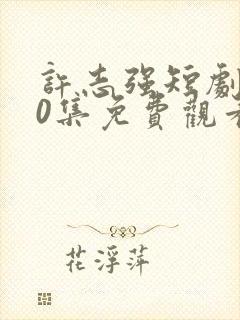 許志强短劇
0集免費觀看
花浮萍